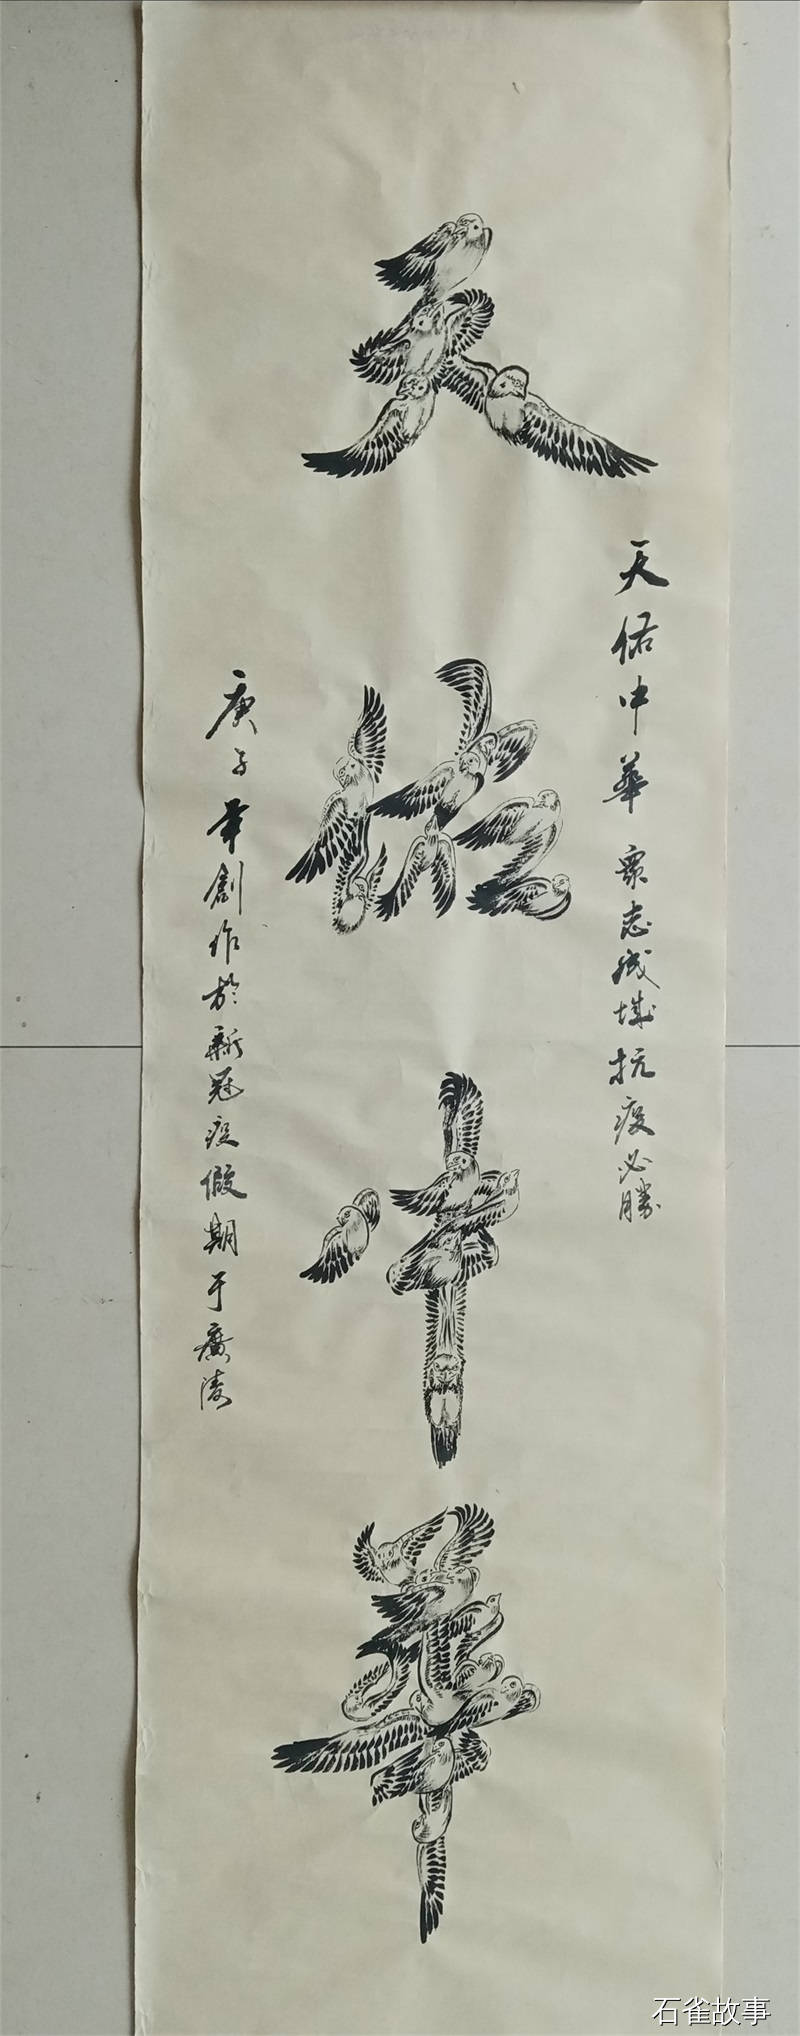 天佑中華
天佑中華 衆志成城抗疫必勝
庚子年創作於新冠疫假期于廣陵
石雀故事